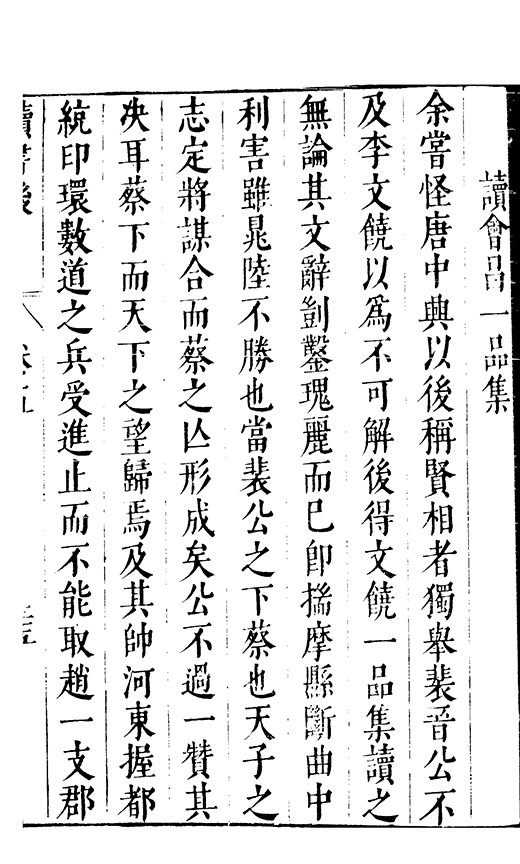 讀會昌一品集
余嘗怪唐中興以後稱賢相者獨舉裴晉公不
及李文饒以爲不可解後得文饒一品集讀之
無論其文辭剴鑿瑰麗而已卽揣摩縣斷曲中
利害雖鼂陸不勝也當裴公之下蔡也天子之
志定將謀合而蔡之亾形成矣公不過一贊其
决耳蔡下而天下之望歸焉及其帥河東握都
統印環數道之兵受進止而不能取趙一支郡
讀書後